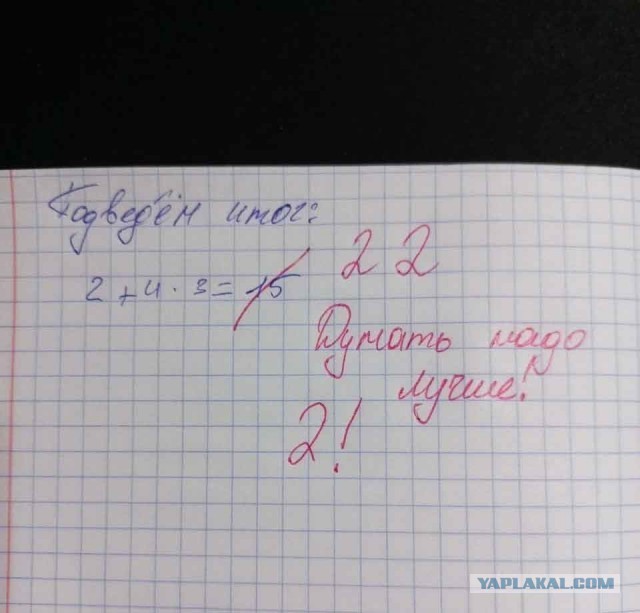 Подведём итог:
2 + 4 · 3 = 15 22
Думать надо
лучше!
2!
YAPLAKAL.COM